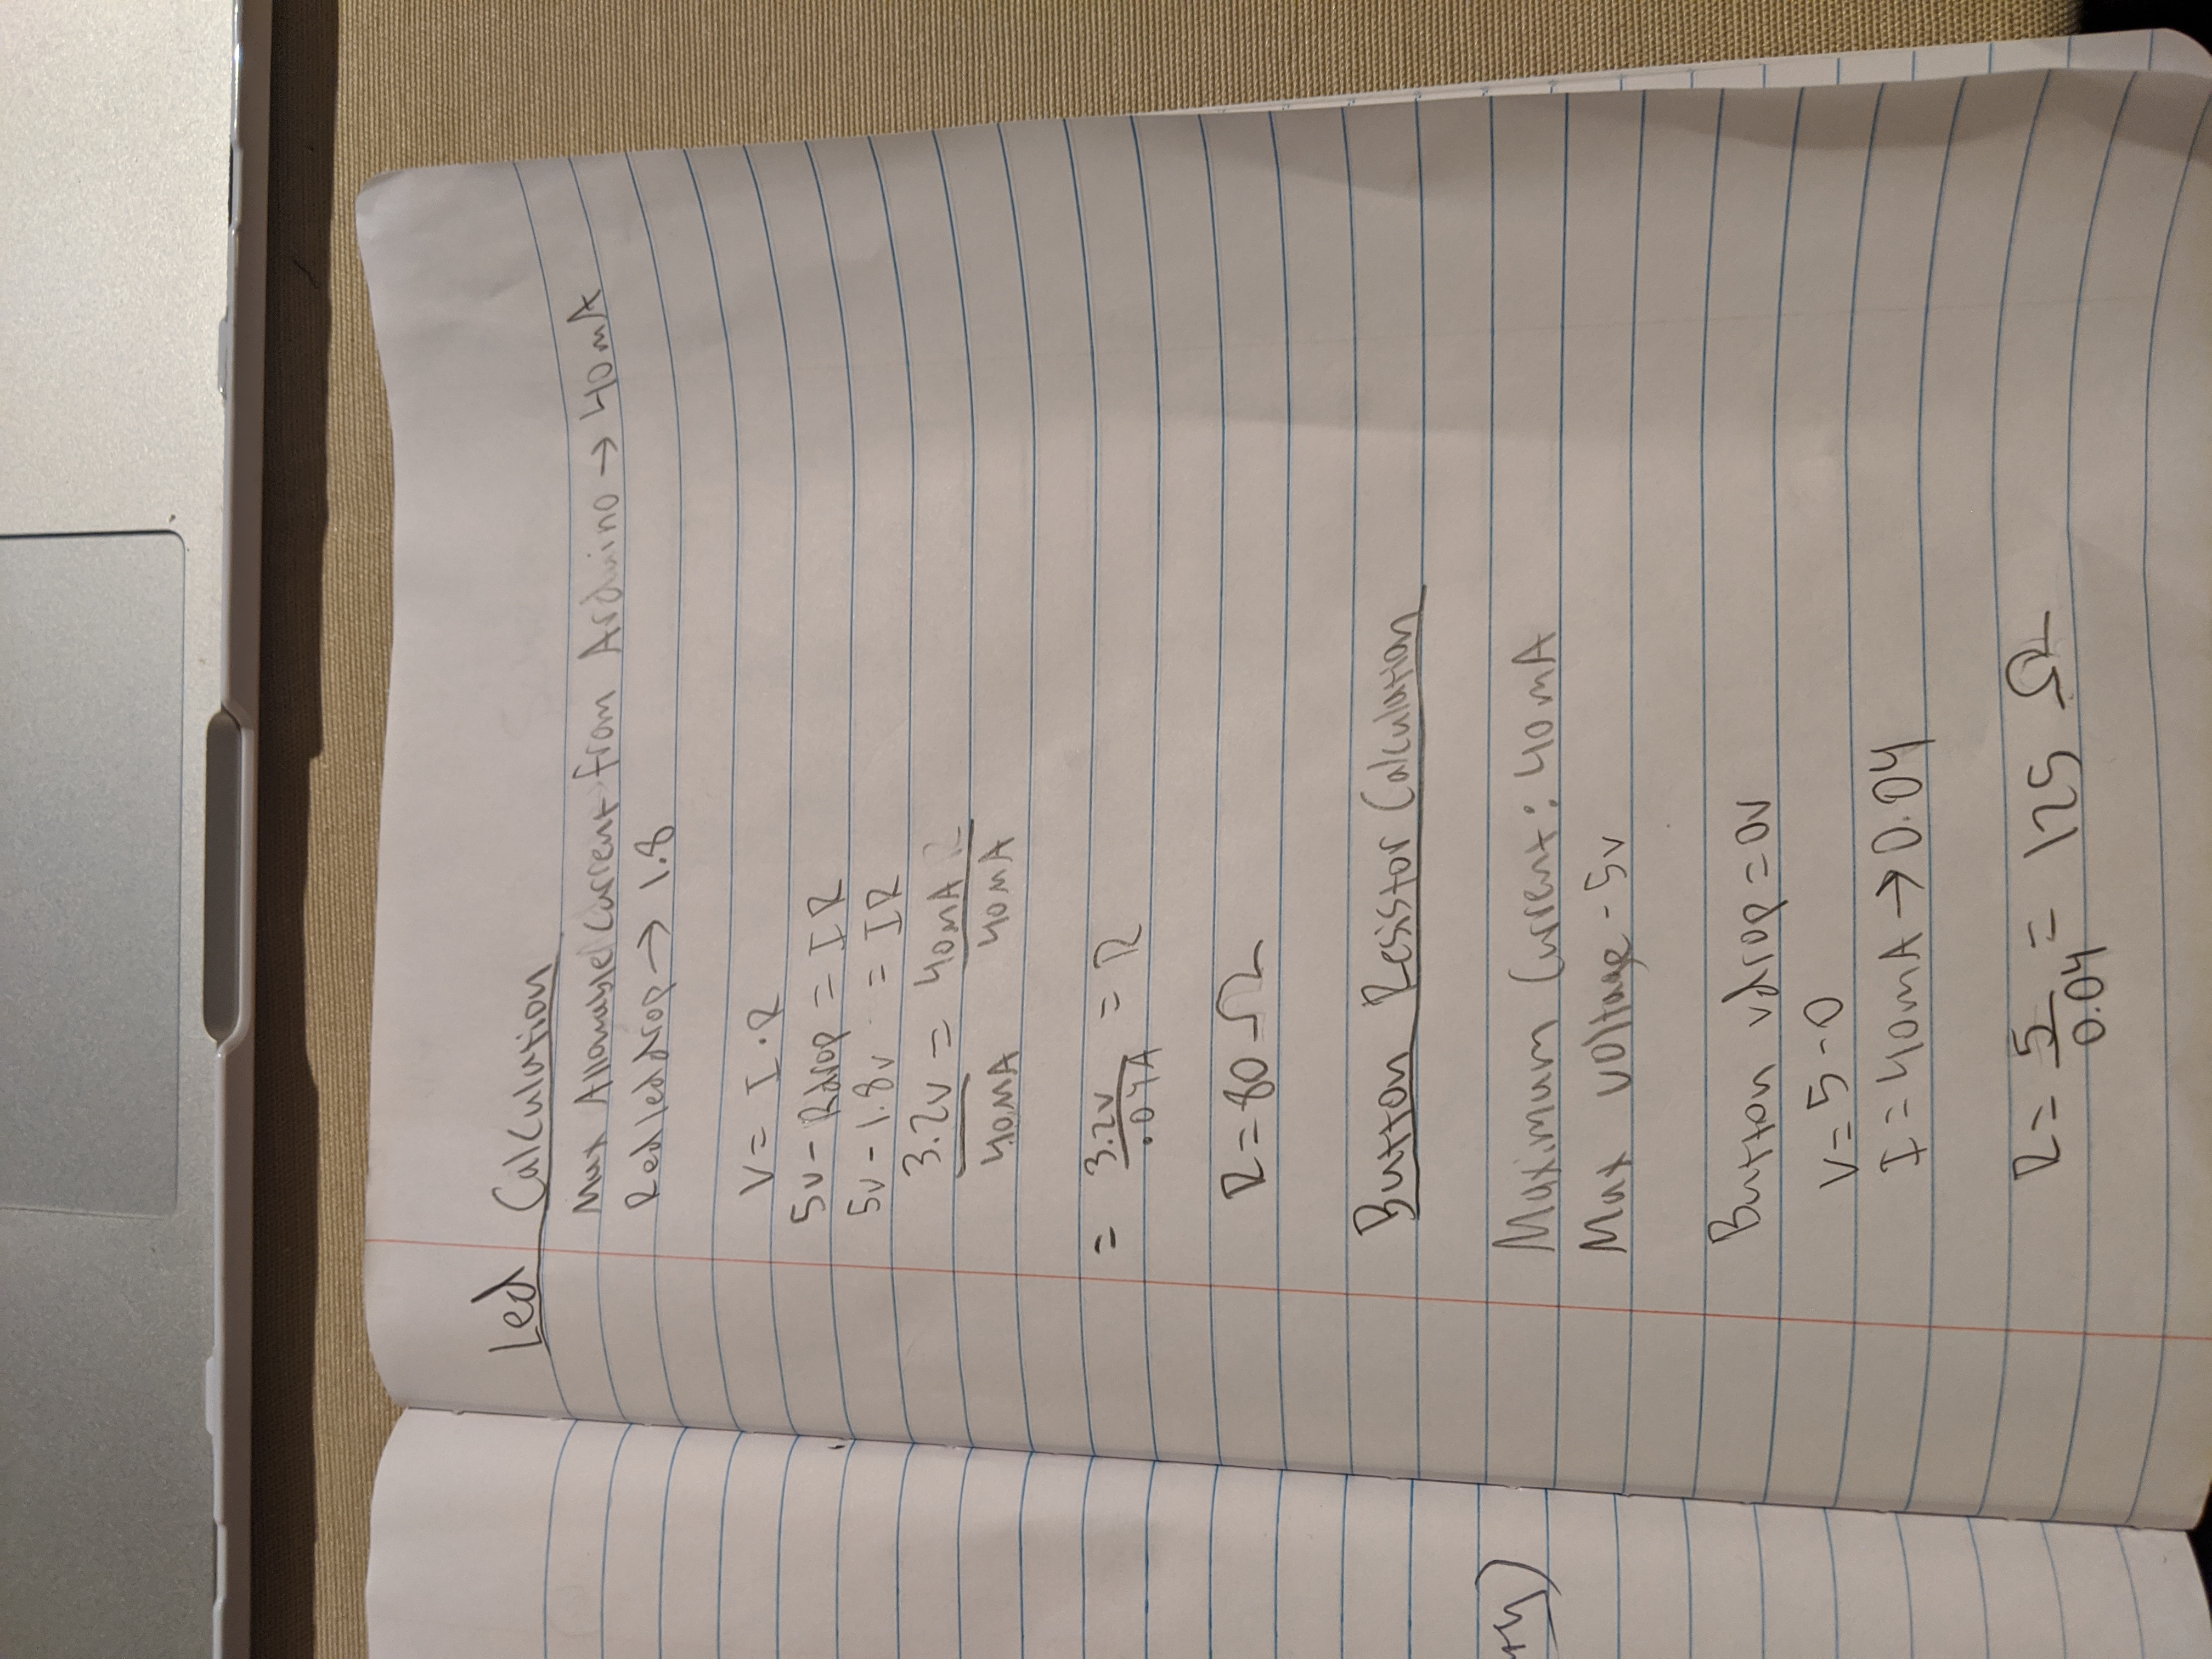 Led Calculation
Max Allowable Current from Arduino → 40mA
Red led drop → 1.8
V = I · R
5v - Rdrop = IR
5v - 1.8v = IR
3.2v = 40mA R
40mA 40mA
= 3.2v = R
.04A
R = 80 Ω
Button Resistor Calculation
Maximum Current: 40mA
Max voltage - 5v
Button vdrop = 0v
V = 5 - 0
I = 40mA → 0.04
R = 5 = 125 Ω
0.04